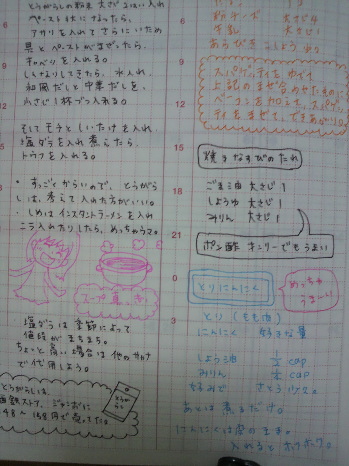 とうがらしの粉末 大さじ2 入れ
ペースト状になったら、
アサリを入れてさらにいため
具とペーストがまざったら、
キャベツを入れる。
しんなりしてきたら、水入れ、
和風だしと中華だしを、
小さじ1杯ずつ入れる。
そしてモヤシとしいたけを入れ
塩ダラを入れ煮えたら、
トウフを入れる。
・すっごくからいので、とうがら
しは、考えて入れた方がいい。
・しめはインスタントラーメンを入れ
こう入れたりしたら、めっちゃうマ。
スープ
塩ダラは季節によって
値段がまちまち。
ちょっと高い場合は他のサカナ
で代用しよう。
とうがらしは、
とうがらし
粉チーズ 大さじ4
牛乳 大さじ1
あらびきこしょう 少々
スパゲッティをゆでて
上記のまぜ合わせたものに
ベーコンを加えて、スパゲッ
ティをまぜて、できあがり。
焼きなすびのたれ
ごま油 大さじ1
しょうゆ 大さじ1
みりん 大さじ1
ポン酢 オンリーでもうまい
とりにんにく
めっちゃ
うまいー!
とり (もも肉)
にんにく 好きな量
しょう油 1/2 cap
みりん 1/2 cap
好みで さとう 少々。
あとは煮るだけ。
にんにくは皮のまま。
入れるとホクホク。